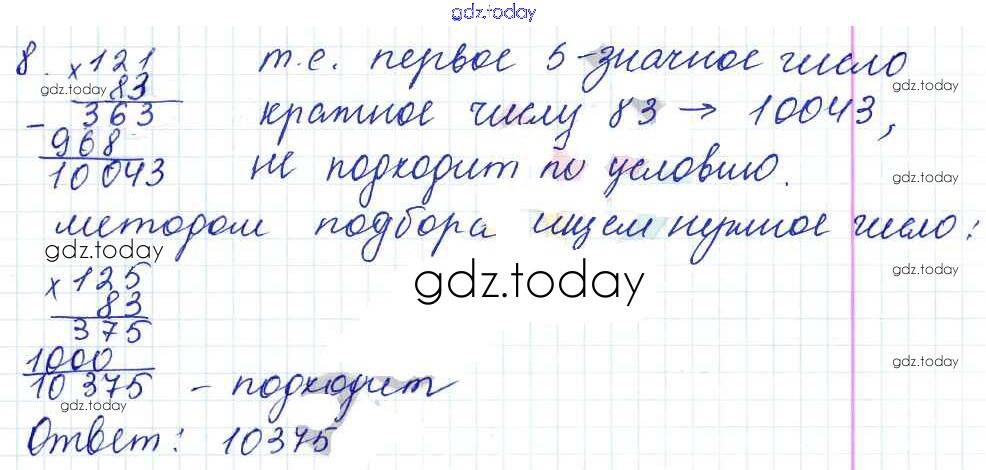 gdz.today
8. ×121 т.е. первое 5-значное число
gdz.today 83 gdz.today
− 363 кратное числу 83 → 10043,
968
10043 не подходит по условию. gdz.today
методом подбора ищем нужное число:
gdz.today gdz.today
×125 gdz.today
83
375
1000 gdz.today
10375 - подходит
gdz.today
Ответ: 10375 gdz.today